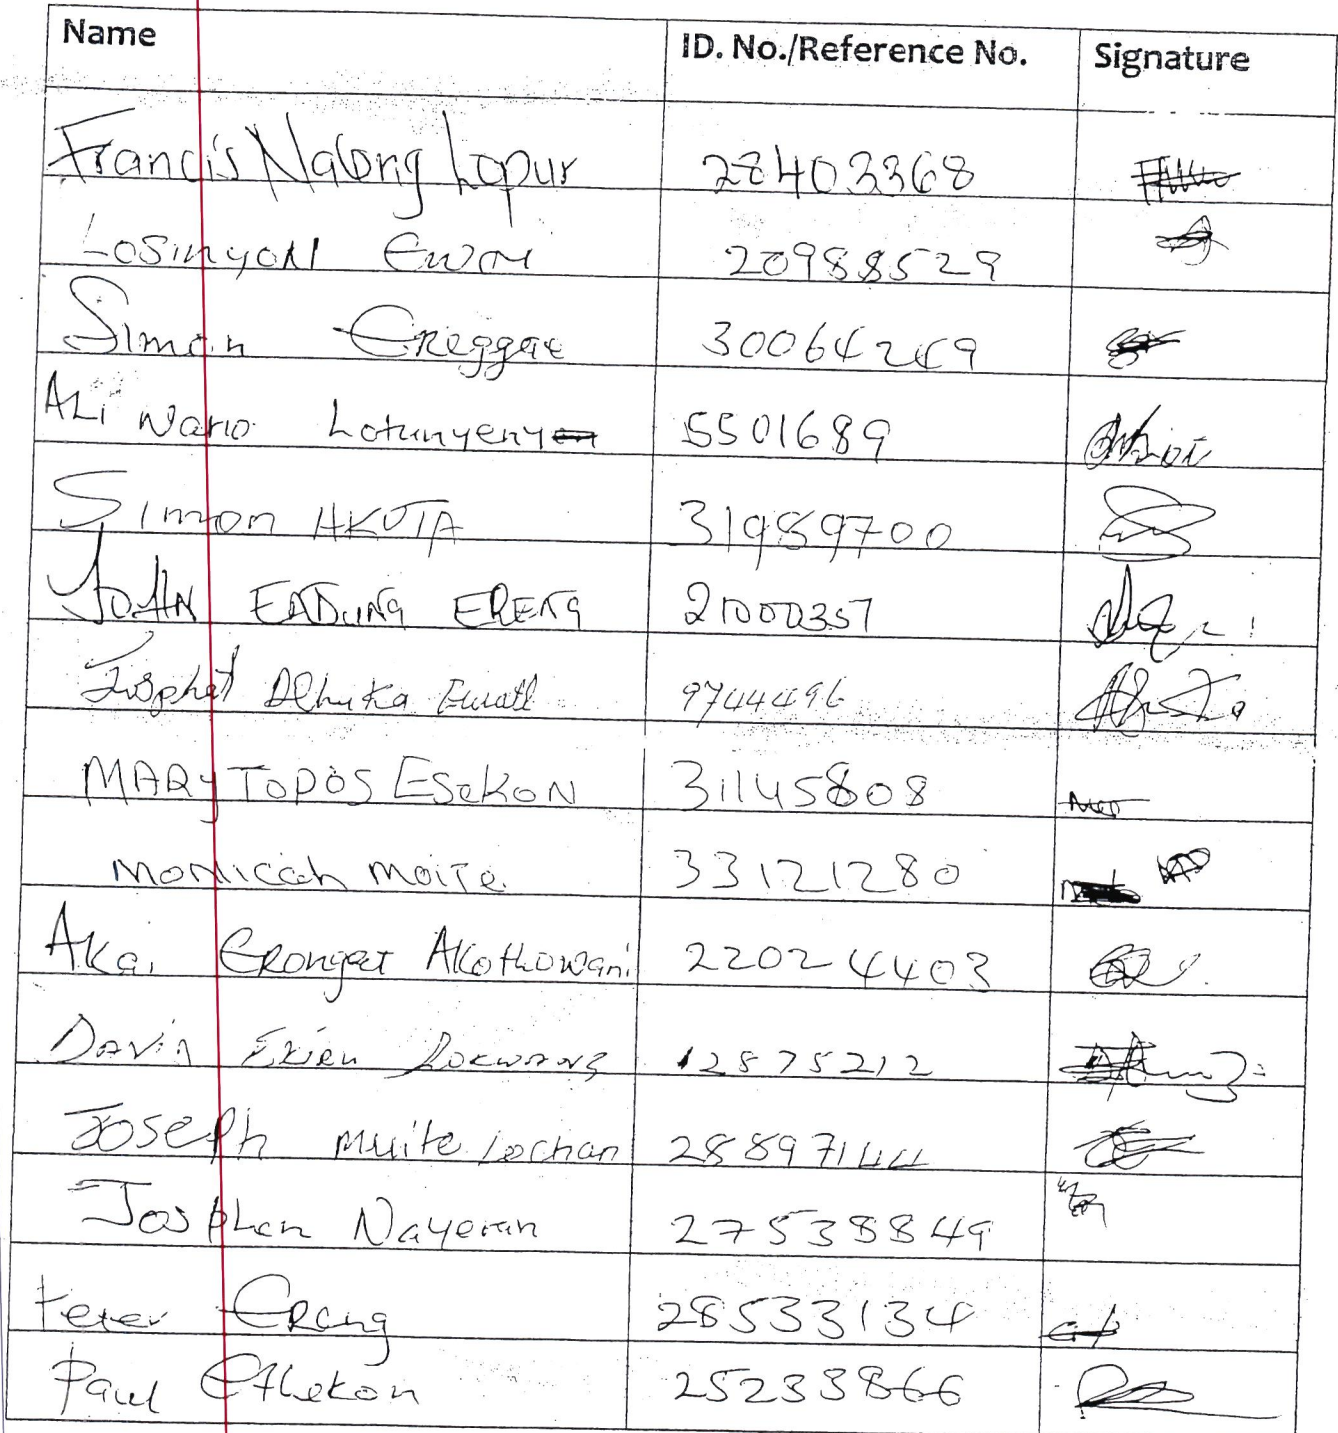 Name ID. No./Reference No. Signature
Francis Nalong Lopur 28403368
Losinyon Ewoi 20988529
Simon Ereggae 30064249
ALi Wario Lotunyeny 5501689
Simon AKUTA 31989700
JOHN EADUNG ERENG 21000357
Josphat Ewatt 9744496
MARY TOPOS ESEKON 31145808
Monicah Moite 33121280
Akai Erongat Akothowani 22024403
David Ekien Lokwang 12875212
Joseph Muite Lochan 28897144
Josphen Nayeran 27538849
Peter Erang 28533134
Paul Ethekon 25233866